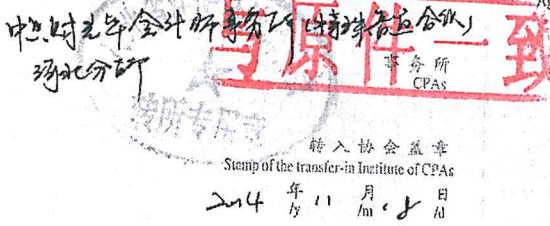 中兴财光华会计师事务所(特殊普通合伙)
河北分所
与原件一致
事务所
CPAs
转所专用章
转入协会盖章
Stamp of the transfer-in Institute of CPAs
2014 年 11 月 18 日
/y /m /d